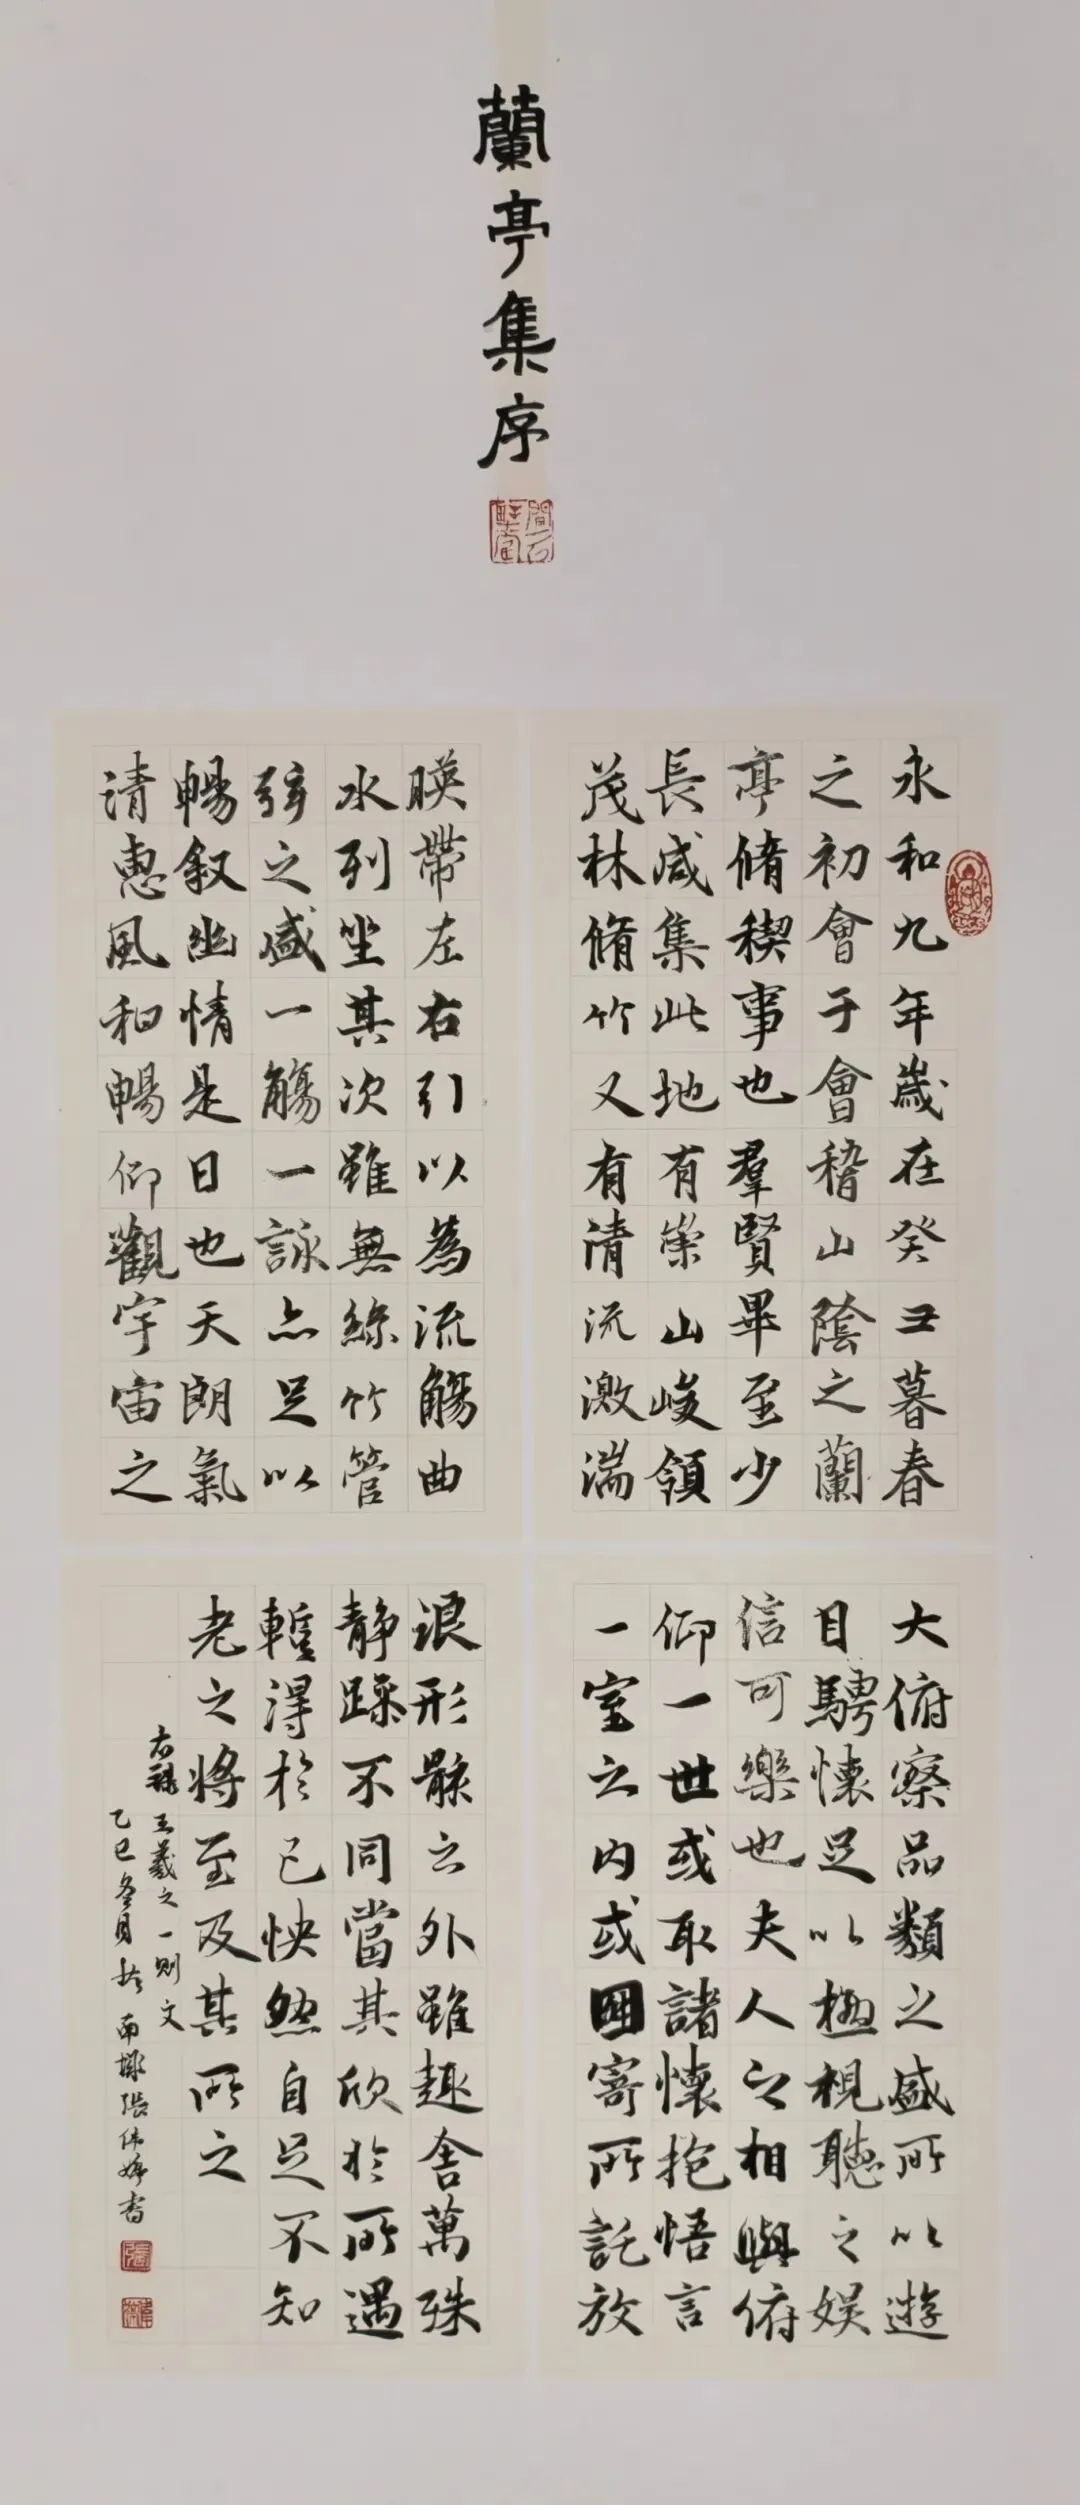 蘭亭集序
永和九年歲在癸丑暮春
之初會于會稽山陰之蘭
亭脩稧事也羣賢畢至少
長咸集此地有崇山峻領
茂林脩竹又有清流激湍
暎帶左右引以為流觴曲
水列坐其次雖無絲竹管
弦之盛一觴一詠亦足以
暢叙幽情是日也天朗氣
清惠風和暢仰觀宇宙之
大俯察品類之盛所以遊
目騁懷足以極視聽之娛
信可樂也夫人之相與俯
仰一世或取諸懷抱悟言
一室之內或因寄所託放
浪形骸之外雖趣舍萬殊
靜躁不同當其欣於所遇
暫得於己怏然自足不知
老之將至及其所之
右錄王羲之一則文
乙巳冬月於 張偉 書